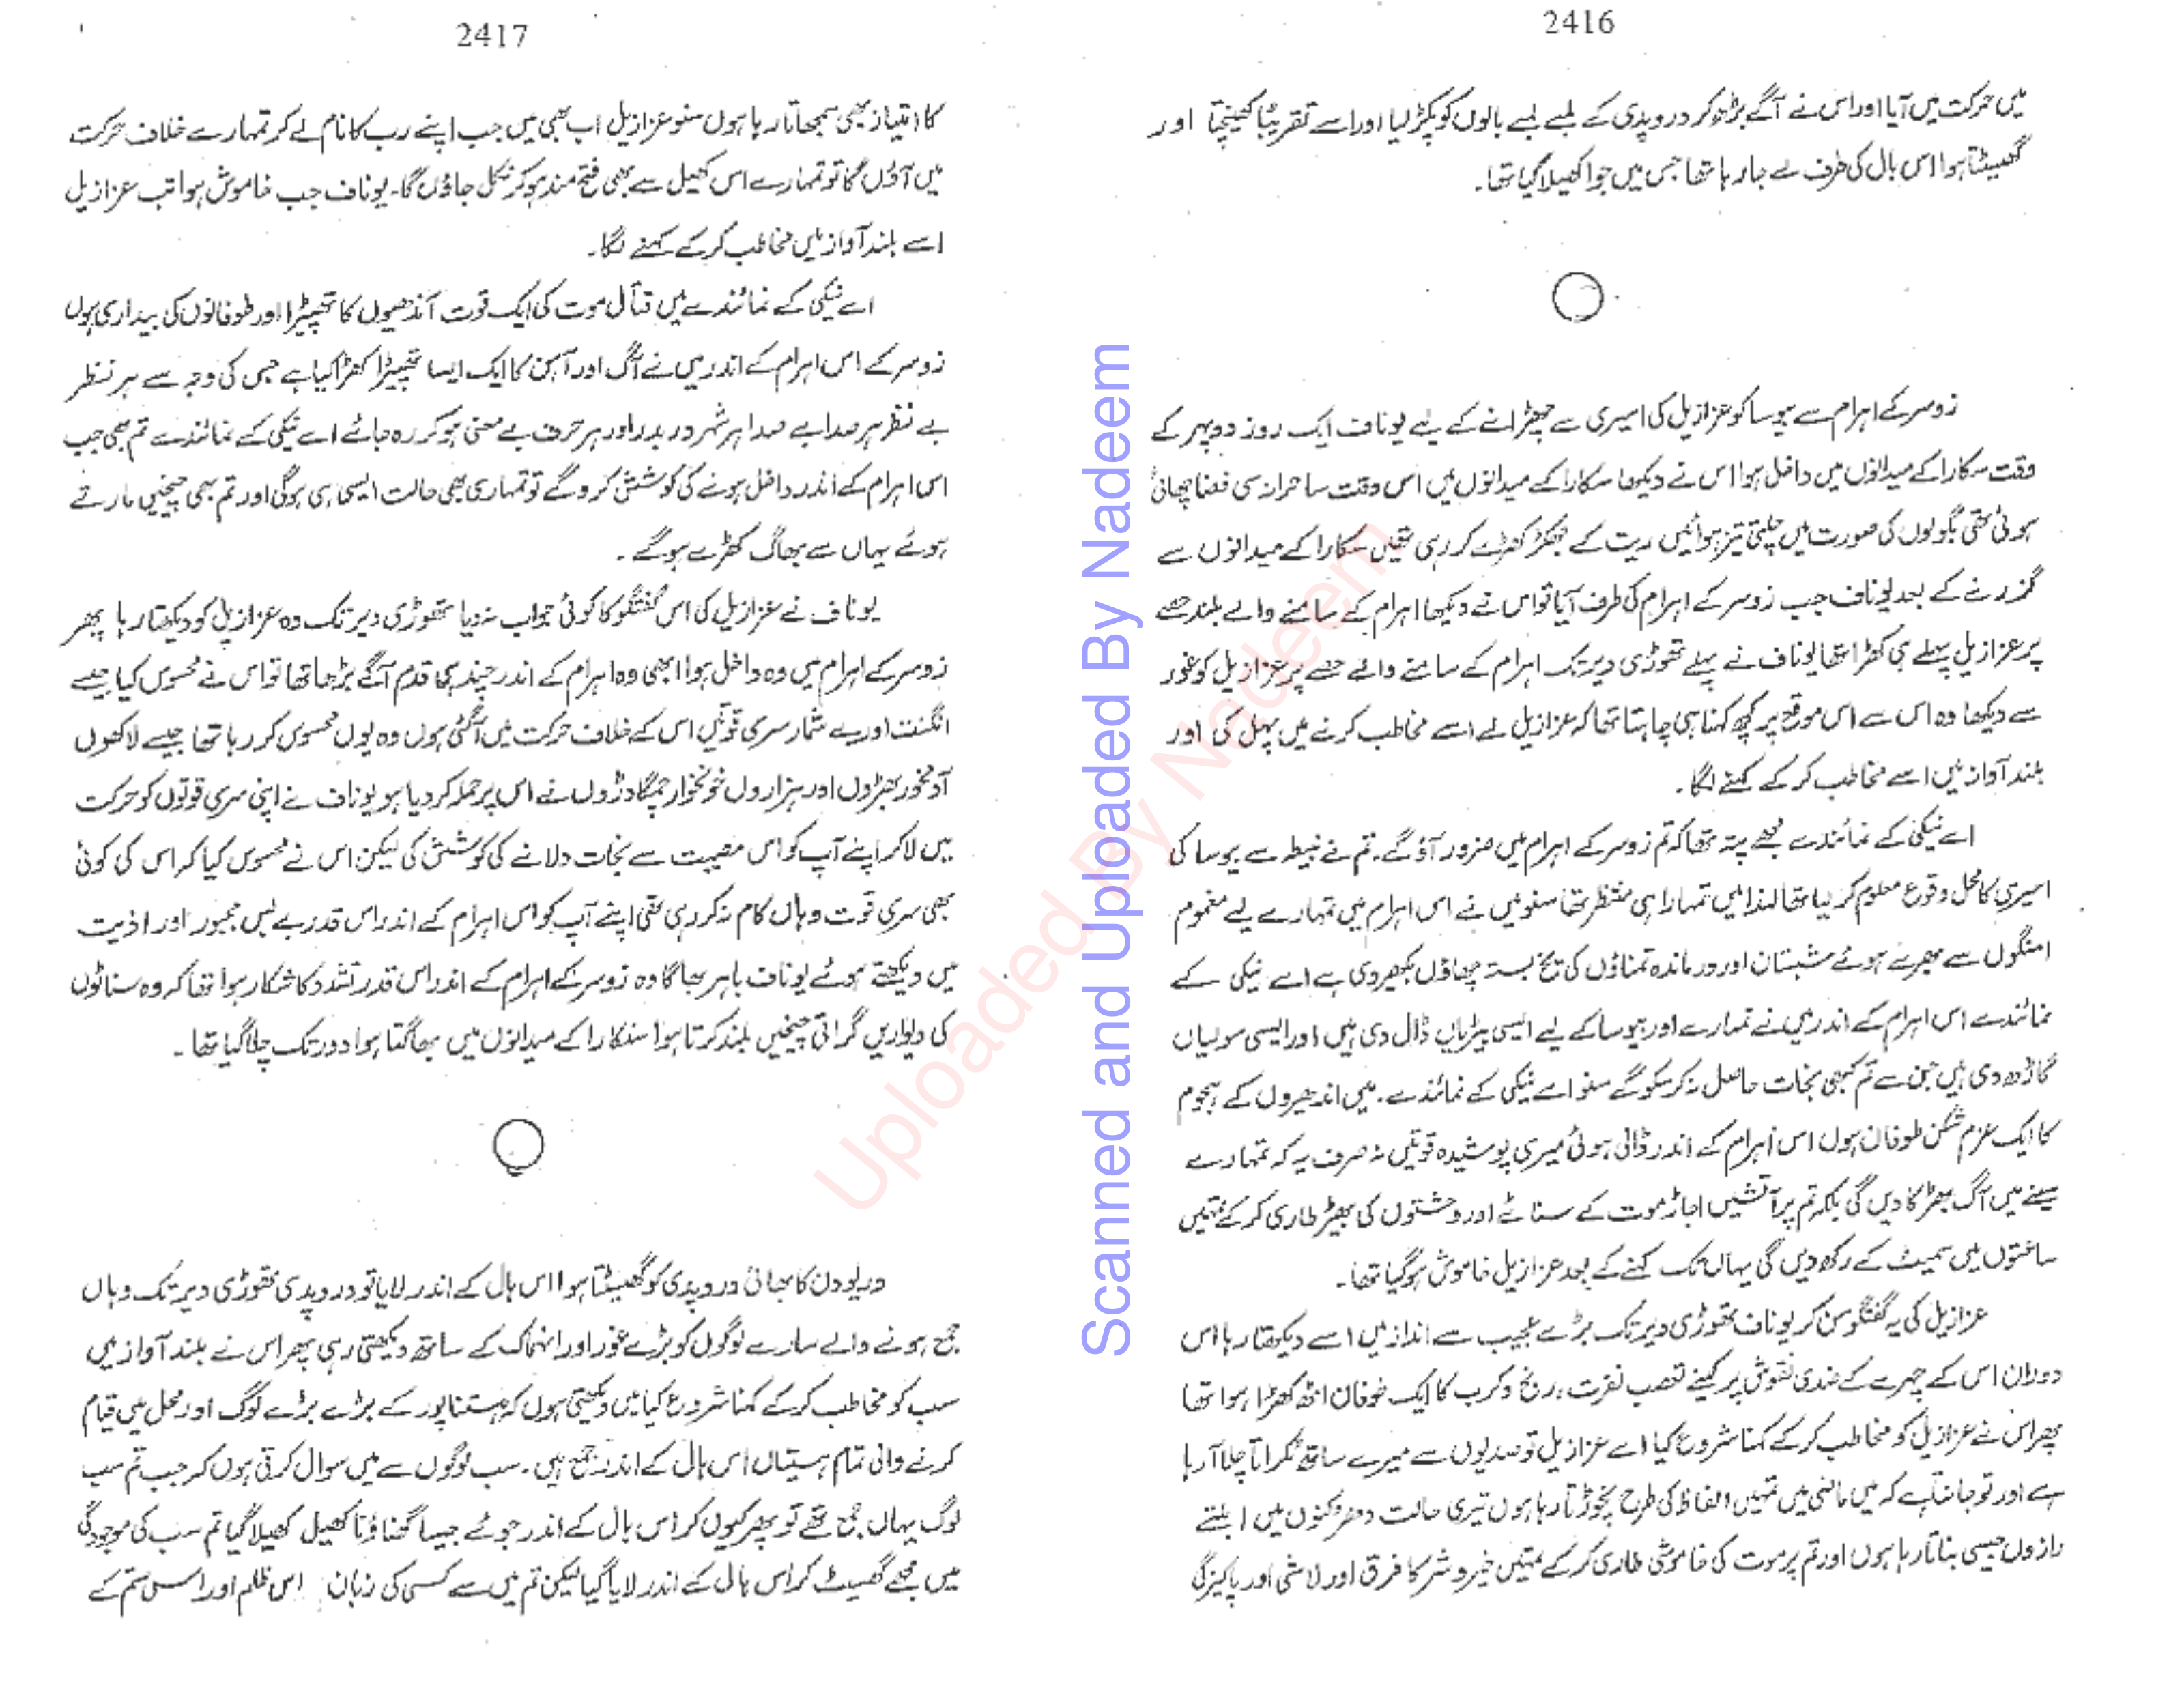 2416
میں حرکت میں آیا اور اس نے آگے بڑھ کر دروپدی کے لمبے لمبے بالوں کو پکڑ لیا اور اسے تقریبًا کھینچتا اور
گھسیٹتا ہوا اس ہال کی طرف لے جا رہا تھا جس میں جوا کھیلا گیا تھا۔
زوسر کے اہرام سے بیوسا کو عزازیل کی اسیری سے چھڑانے کے لیے یوناف ایک روز دوپہر کے
وقت سکارا کے میدانوں میں داخل ہوا اس نے دیکھا سکارا کے میدانوں میں اس وقت ساحرانہ سی فضا چھائی
ہوئی تھی بگولوں کی صورت میں چلتی تیز ہوائیں ریت کے جھکڑ کھڑے کر رہی تھیں سکارا کے میدانوں سے
گزرنے کے بعد یوناف جب زوسر کے اہرام کی طرف آیا تو اس نے دیکھا اہرام کے سامنے والے بلند حصے
پر عزازیل پہلے ہی کھڑا تھا یوناف نے پہلے تھوڑی دیر تک اہرام کے سامنے والے حصے پر عزازیل کو غور
سے دیکھا وہ اس سے اس موقع پر کچھ کہنا ہی چاہتا تھا کہ عزازیل نے اسے مخاطب کرنے میں پہل کی اور
بلند آواز میں اسے مخاطب کر کے کہنے لگا۔
اے نیکی کے نمائندے مجھے پتہ تھا کہ تم زوسر کے اہرام میں ضرور آؤ گے۔ تم نے نبیطہ سے بیوسا کی
اسیری کا محل وقوع معلوم کر لیا تھا لہٰذا میں تمہارا ہی منتظر تھا سنو میں نے اس اہرام میں تمہارے لیے مغموم
امنگوں سے بھرے ہوئے شبستان اور درماندہ تمناؤں کی یخ بستہ چھاؤں بکھیر دی ہے اے نیکی کے
نمائندے اس اہرام کے اندر میں نے تمہارے اور بیوسا کے لیے ایسی بیڑیاں ڈال دی ہیں اور ایسی سولیاں
گاڑھ دی ہیں جن سے تم کبھی نجات حاصل نہ کر سکو گے سنو اے نیکی کے نمائندے۔ میں اندھیروں کے ہجوم
کا ایک عزم شکن طوفان ہوں اس اہرام کے اندر ڈالی ہوئی میری پوشیدہ قوتیں نہ صرف یہ کہ تمہارے
سینے میں آگ بھڑکا دیں گی بلکہ تم پر آتشیں اجاڑ موت کے سناٹے اور وحشتوں کی بھیڑ طاری کر کے تمہیں
ساعتوں میں سمیٹ کے رکھ دیں گی یہاں تک کہنے کے بعد عزازیل خاموش ہو گیا تھا۔
عزازیل کی یہ گفتگو سن کر یوناف تھوڑی دیر تک بڑے عجیب سے انداز میں اسے دیکھتا رہا اس
دوران اس کے چہرے کے ضدی نقوش پر کینے تعصب نفرت، رنج و کرب کا ایک طوفان اٹھ کھڑا ہوا تھا
پھر اس نے عزازیل کو مخاطب کر کے کہنا شروع کیا اے عزازیل تو صدیوں سے میرے ساتھ ٹکراتا چلا آ رہا
ہے اور تو جانتا ہے کہ میں ماضی میں تمہیں الفاظ کی طرح نچوڑتا رہا ہوں تیری حالت دھڑکنوں میں ابلتے
رازوں جیسی بناتا رہا ہوں اور تم پر موت کی خاموشی طاری کر کے تمہیں خیر و شر کا فرق اور لاشی اور پاکیزگی
2417
کا امتیاز بھی سمجھاتا رہا ہوں سنو عزازیل اب بھی میں جب اپنے رب کا نام لے کر تمہارے خلاف حرکت
میں آؤں گا تو تمہارے اس کھیل سے بھی فتح مند ہو کر نکل جاؤں گا۔ یوناف جب خاموش ہوا تب عزازیل
اسے بلند آواز میں مخاطب کر کے کہنے لگا۔
اے نیکی کے نمائندے میں قتال موت کی ایک قوت آندھیوں کا تھپیڑا اور طوفانوں کی بیداری ہوں
زوسر کے اس اہرام کے اندر میں نے آگ اور آہن کا ایک ایسا تھپیڑا کھڑا کیا ہے جس کی وجہ سے ہر نظر
بے نظر ہر صدا بے صدا ہر شہر در بدر اور ہر حرف بے معنی ہو کر رہ جائے اے نیکی کے نمائندے تم بھی جب
اس اہرام کے اندر داخل ہونے کی کوشش کرو گے تو تمہاری بھی حالت ایسی ہی ہوگی اور تم بھی چیخیں مارتے
ہوئے یہاں سے بھاگ کھڑے ہو گے۔
یوناف نے عزازیل کی اس گفتگو کا کوئی جواب نہ دیا تھوڑی دیر تک وہ عزازیل کو دیکھتا رہا پھر
زوسر کے اہرام میں وہ داخل ہوا ابھی وہ اہرام کے اندر چند ہی قدم آگے بڑھا تھا تو اس نے محسوس کیا جیسے
انگنت اور بے شمار سری قوتیں اس کے خلاف حرکت میں آ گئی ہوں وہ یوں محسوس کر رہا تھا جیسے لاکھوں
آدم خور بھیڑوں اور ہزاروں خونخوار چمگادڑوں نے اس پر حملہ کر دیا ہو یوناف نے اپنی سری قوتوں کو حرکت
میں لا کر اپنے آپ کو اس مصیبت سے نجات دلانے کی کوشش کی لیکن اس نے محسوس کیا کہ اس کی کوئی
بھی سری قوت وہاں کام نہ کر رہی تھی اپنے آپ کو اس اہرام کے اندر اس قدر بے بس مجبور اور اذیت
میں دیکھتے ہوئے یوناف باہر بھاگا وہ زوسر کے اہرام کے اندر اس قدر تشدد کا شکار ہوا تھا کہ وہ سناٹوں
کی دیواریں گراتی چیخیں بلند کرتا ہوا سکارا کے میدانوں میں بھاگتا ہوا دور تک چلا گیا تھا۔
دریودن کا بھائی دروپدی کو گھسیٹتا ہوا اس ہال کے اندر لایا تو دروپدی تھوڑی دیر تک وہاں
جمع ہونے والے سارے لوگوں کو بڑے غور اور انہماک کے ساتھ دیکھتی رہی پھر اس نے بلند آواز میں
سب کو مخاطب کر کے کہنا شروع کیا میں دیکھتی ہوں کہ ہستناپور کے بڑے بڑے لوگ اور محل میں قیام
کرنے والی تمام ہستیاں اس ہال کے اندر جمع ہیں۔ سب لوگوں سے میں سوال کرتی ہوں کہ جب تم سب
لوگ یہاں جمع تھے تو پھر کیوں کر اس ہال کے اندر جوئے جیسا گھناؤنا کھیل کھیلا گیا تم سب کی موجودگی
میں مجھے گھسیٹ کر اس ہال کے اندر لایا گیا لیکن تم میں سے کسی کی زبان اس ظلم اور اس ستم کے
Scanned and Uploaded By Nadeem
Uploaded By Nadeem